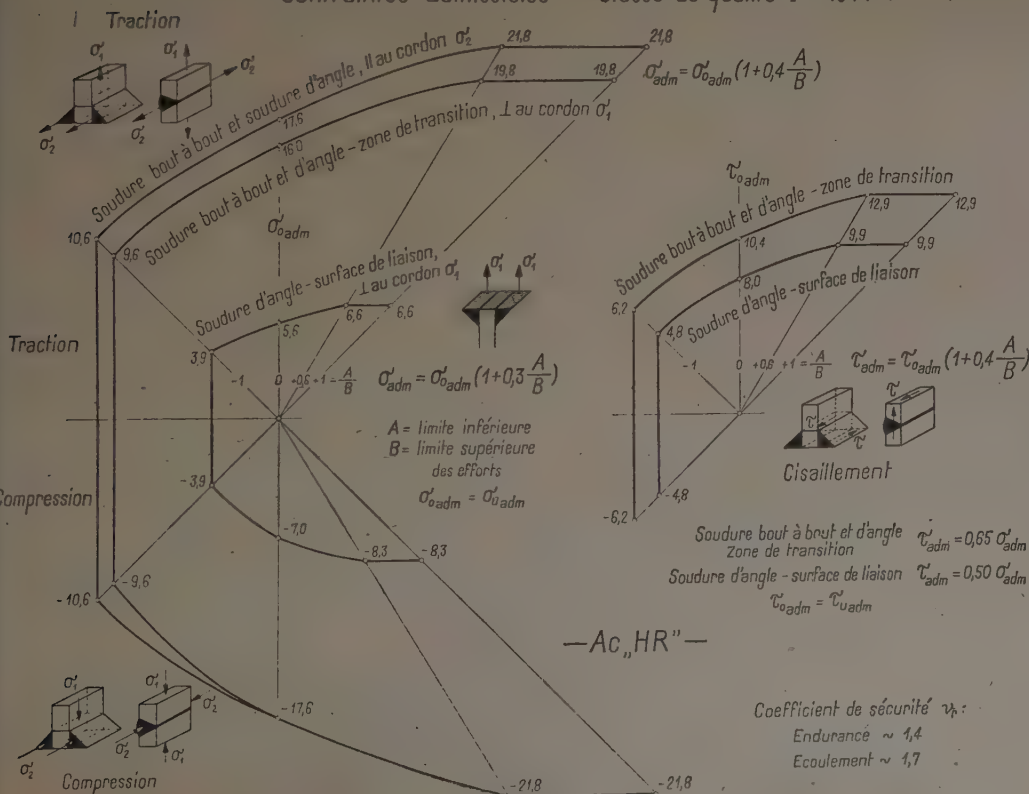 Traction
σ₁
σ₂
σ₁
σ₂
Soudure bout à bout et soudure d'angle, II au cordon σ₂
Soudure bout à bout et d'angle - zone de transition, ⊥ au cordon σ₁
21,8
21,8
19,8
19,8
17,6
16,0
10,6
9,6
σ₀ adm
σ adm = σ₀ adm (1+0,4 A/B)
Soudure d'angle - surface de liaison,
⊥ au cordon σ₁
3,9
5,6
6,6
6,6
σ₁ σ₁
Traction
-1 0 +0,6 +1 = A/B
σ adm = σ₀ adm (1+0,3 A/B)
A = limite inférieure
B = limite supérieure
des efforts
σ₀ adm = σᵤ adm
Compression
-3,9
-7,0
-8,3
-8,3
-9,6
-10,6
-17,6
-21,8
-21,8
σ₁
σ₂
σ₁
σ₂
σ₁
Compression
τ₀ adm
Soudure bout à bout et d'angle - zone de transition
Soudure d'angle - surface de liaison
12,9
12,9
10,4
9,9
9,9
8,0
6,2
4,8
-1 0 +0,6 +1 = A/B
τ adm = τ₀ adm (1+0,4 A/B)
τ
τ
τ
Cisaillement
-4,8
-6,2
Soudure bout à brut et d'angle
Zone de transition
τ adm = 0,65 σ adm
Soudure d'angle - surface de liaison τ adm = 0,50 σ adm
τ₀ adm = τᵤ adm
—Ac„HR”—
Coefficient de sécurité
Endurance ~ 1,4
Ecoulement ~ 1,7